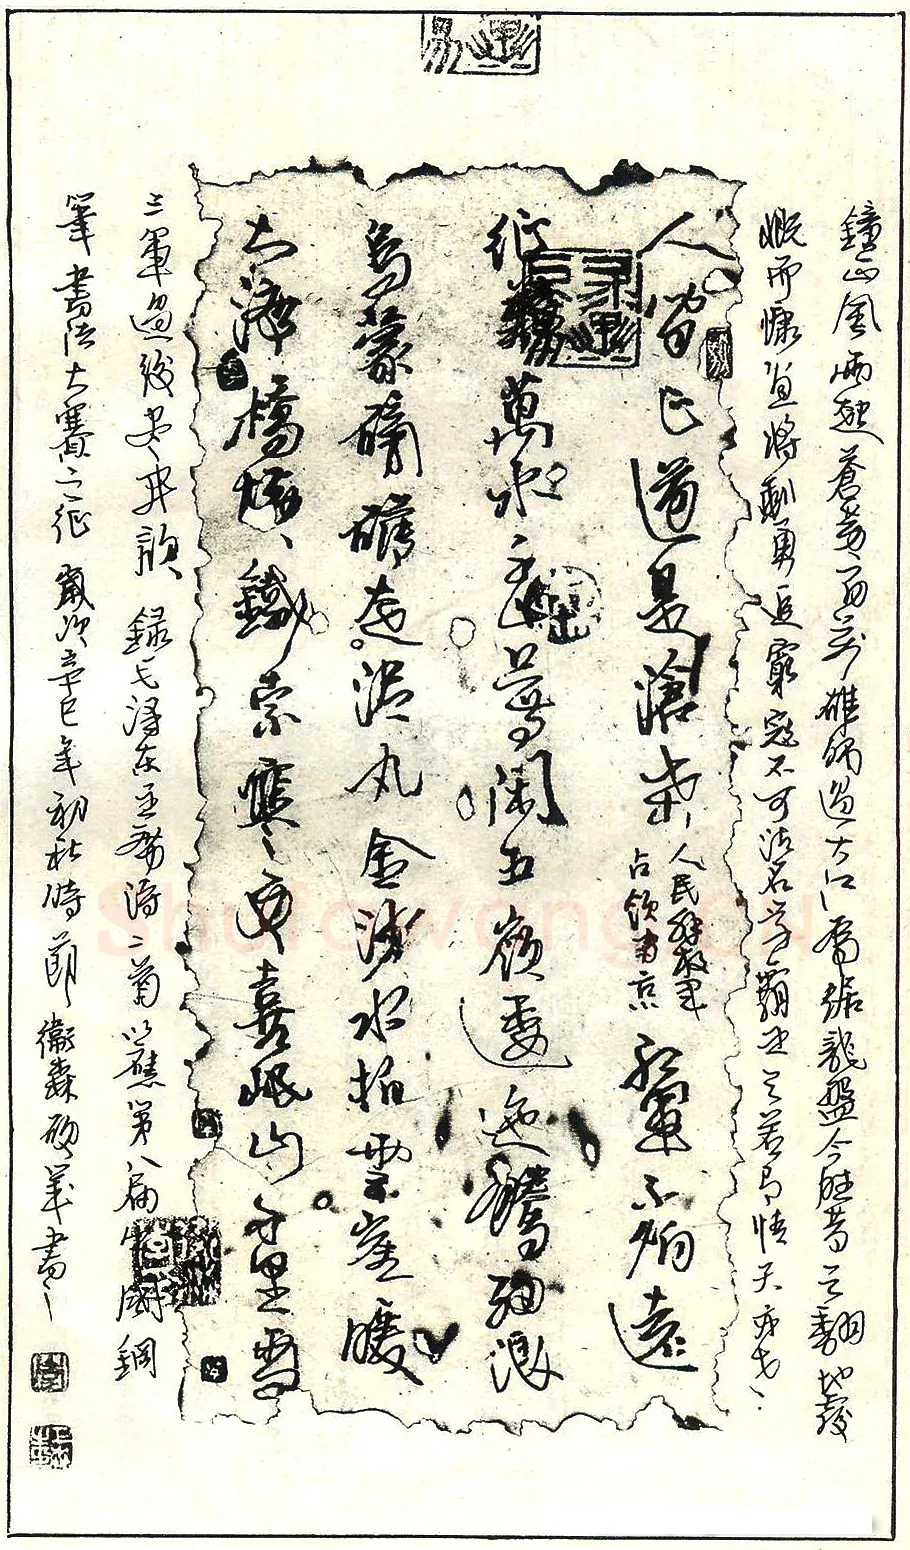 鐘山風雨起蒼黃百萬雄師過大江虎踞龍盤今勝昔天翻地覆
慨而慷宜將剩勇追窮寇不可沽名學霸王天若有情天亦老
人間正道是滄桑
人民解放軍
占領南京
紅軍不怕遠
征難萬水千山等閑五嶺逶迤騰細浪
烏蒙磅礴走泥丸金沙水拍雲崖暖
大渡橋橫鐵索寒更喜岷山千里雪
三軍過後盡開顏 錄毛澤東主席詩二首以應第八届中國鋼
筆書法大賽之征 歲次辛巳年初秋時節衛森硬筆書
Shufawang.cn